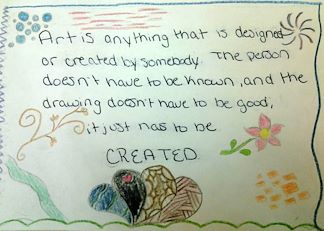 Art is anything that is designed
or created by somebody. The person
doesn't have to be known, and the
drawing doesn't have to be good,
it just has to be
CREATED